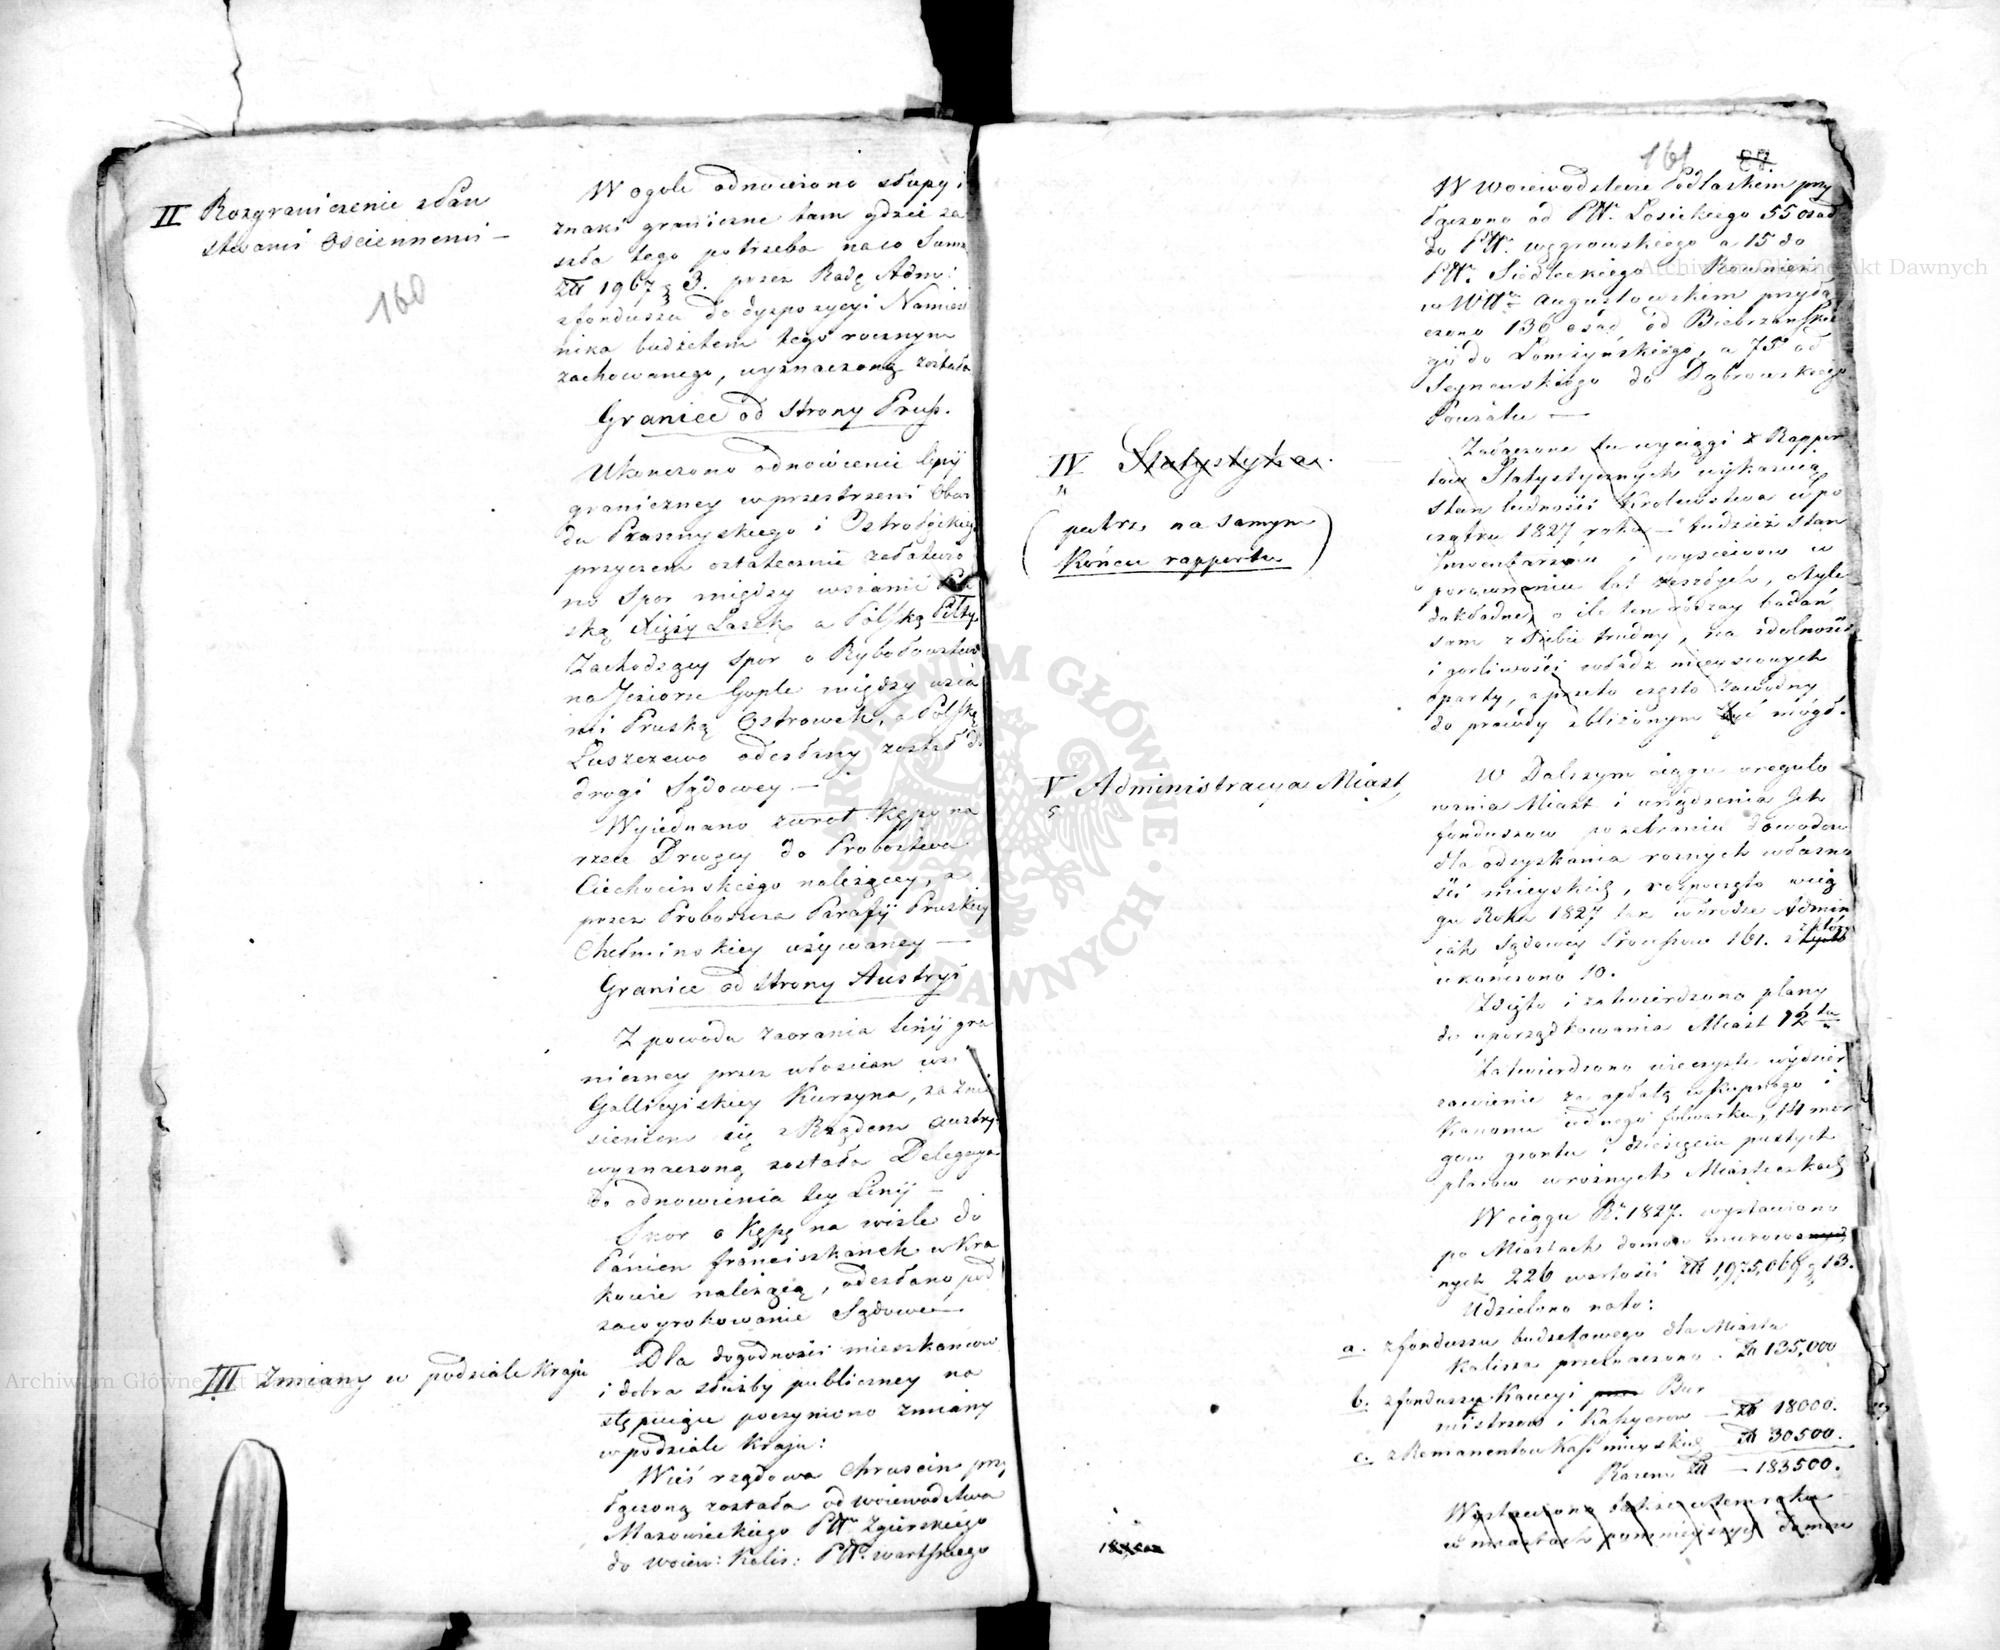 II Rozgraniczenie z Pań
stwami Ościennemi —
160
W ogole odnowiono słupy i
znaki graniczne tam gdzie za
szła tego potrzeba na co Suma
Zł 1967 g 3. przez Radę Adm:
z funduszu do dyspozycyi Namiest
nika budżetem tego rocznym
zachowanego, wyznaczoną została
Granice od strony Pruss.
Ukonczono odnowienie linji
graniczney w przestrzeni Obwo
du Przasnyskiego i Ostrołęckiego
przyczem ostatecznie załatwio
no Spor między wsiami Pru
ską Xięży Lasek, a Polską Pełty
Zachodzący Spor o Rybołowstwo
na Jeziorze Gople między wsia
mi Pruską Ostrowek, a Polską
Łuszczewo odesłany został do
drogi Sądowey —
Wyiednano zwrot Kępo na
rzece Drwęcy do Probostwa
Ciechocinskiego należącey, a
przez Proboszcza Parafji Pruskiey
Chełminskiey używaney —
Granice od strony Austryi
Z powodu zaorania linji gra
niczney przez włoscian wsi
Gallicyiskiey Kurzyna, za znie
sieniem się z Rządem Austry:
wyznaczoną została Delegacya
do odnowienia tey Linji —
Spor o Kępę na wiśle do
Panien franciszkanek w Kra
kowie należącą, odesłano pod
zawyrokowanie Sądowe —
III Zmiany w podziale Kraju
Dla dogodności mieszkańcow
i dobra służby publiczney na
stępuiące poczyniono zmiany
w podziale Kraju:
Wieś rządowa Chruscin przy
łączoną została od woiewodztwa
Mazowieckiego Pttu Zgierskiego
do woiew: Kalis: Pttu wartskiego
161 87
W Woiewodztwie Podlaskiem przy
łączono od Pttu Łosickiego 55 osad
do Pttu węgrowskiego a 15 do
Pttu Siedleckiego Rownież
w Wttwie Augustowskiem przyłą
czono 136 osad od Biebrzańskie
go do Łomżyńskiego, a 75 od
Seynenskiego do Dąbrowskiego
Powiatu —
IV Statystyka.
(patrz na samym
Końcu rapportu)
Załączone tu wyciągi z Rappor
tow Statystycznych wykazuią
stan ludności Krolewstwa w po
czątku 1827 roku — tudzież stan
Inwentarzow i wysiewow w
porownaniu lat zeszłych, o tyle
dokładne, o ile ten rodzay badań
sam z siebie trudny, na zdolności
i gorliwości władz mieyscowych
oparty, a przeto często zawodny
do prawdy zbliżonym być mógł.
V Administracya Miast
W Dalszym ciągu uregulo
wania Miast i urządzenia Ich
funduszow po zebraniu dowodow
dla odzyskania roznych własno
ści mieyskich, rozpoczęto wcią
gu Roku 1827 tak w drodze Admin
iak Sądowey Processow 161. z których
ukończono 10.
Zdjęto i zatwierdzono plany
do uporządkowania Miast 12tu
Zatwierdzono wieczyste wydzier
zawienie za opłatą wkupnego i
Kanonu iednego folwarku, 14 mor
gow gruntu i dziesięciu pustych
placow w roźnych Miasteczkach
W ciągu Ru 1827. wystawiono
po Miastach domow murowa
nych 226 wartości Zł 1,975,068 g 13.
Udzielono na to:
a. z funduszu budżetowego dla Miasta
Kalisza przeznaczono . Zł 135,000
b. z funduszu Kaucyi Bur
mistrzow i Kassyerow — Zł 18000.
c. z Remanentow Kass mieyskich Zł 30500.
Razem Zł — 183500.
Wystawiono także w tem roku
w miastach pomnieyszych domow